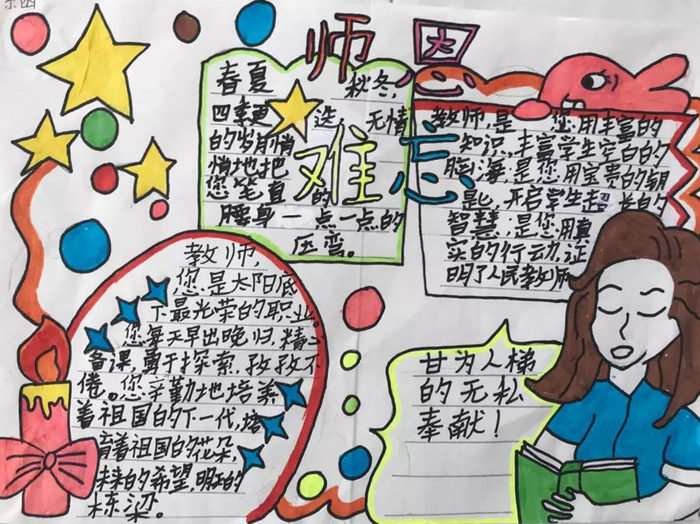 师恩
难忘
春夏秋冬,
四季更迭,无情
的岁月悄
悄地把
您笔直的
腰身一点一点的
压弯。
教师,是您用丰富的
知识,丰富学生空白的
脑海;是您用宝贵的钥
匙,开启学生超长的
智慧;是您用真
实的行动,证
明了人民教师
教师,
您是太阳底
下最光荣的职业。
您每天早出晚归,精心
备课,勇于探索,孜孜不
倦。您辛勤地培养
着祖国的下一代,培
育着祖国的花朵,
未来的希望,明日的
栋梁。
甘为人梯
的无私
奉献!